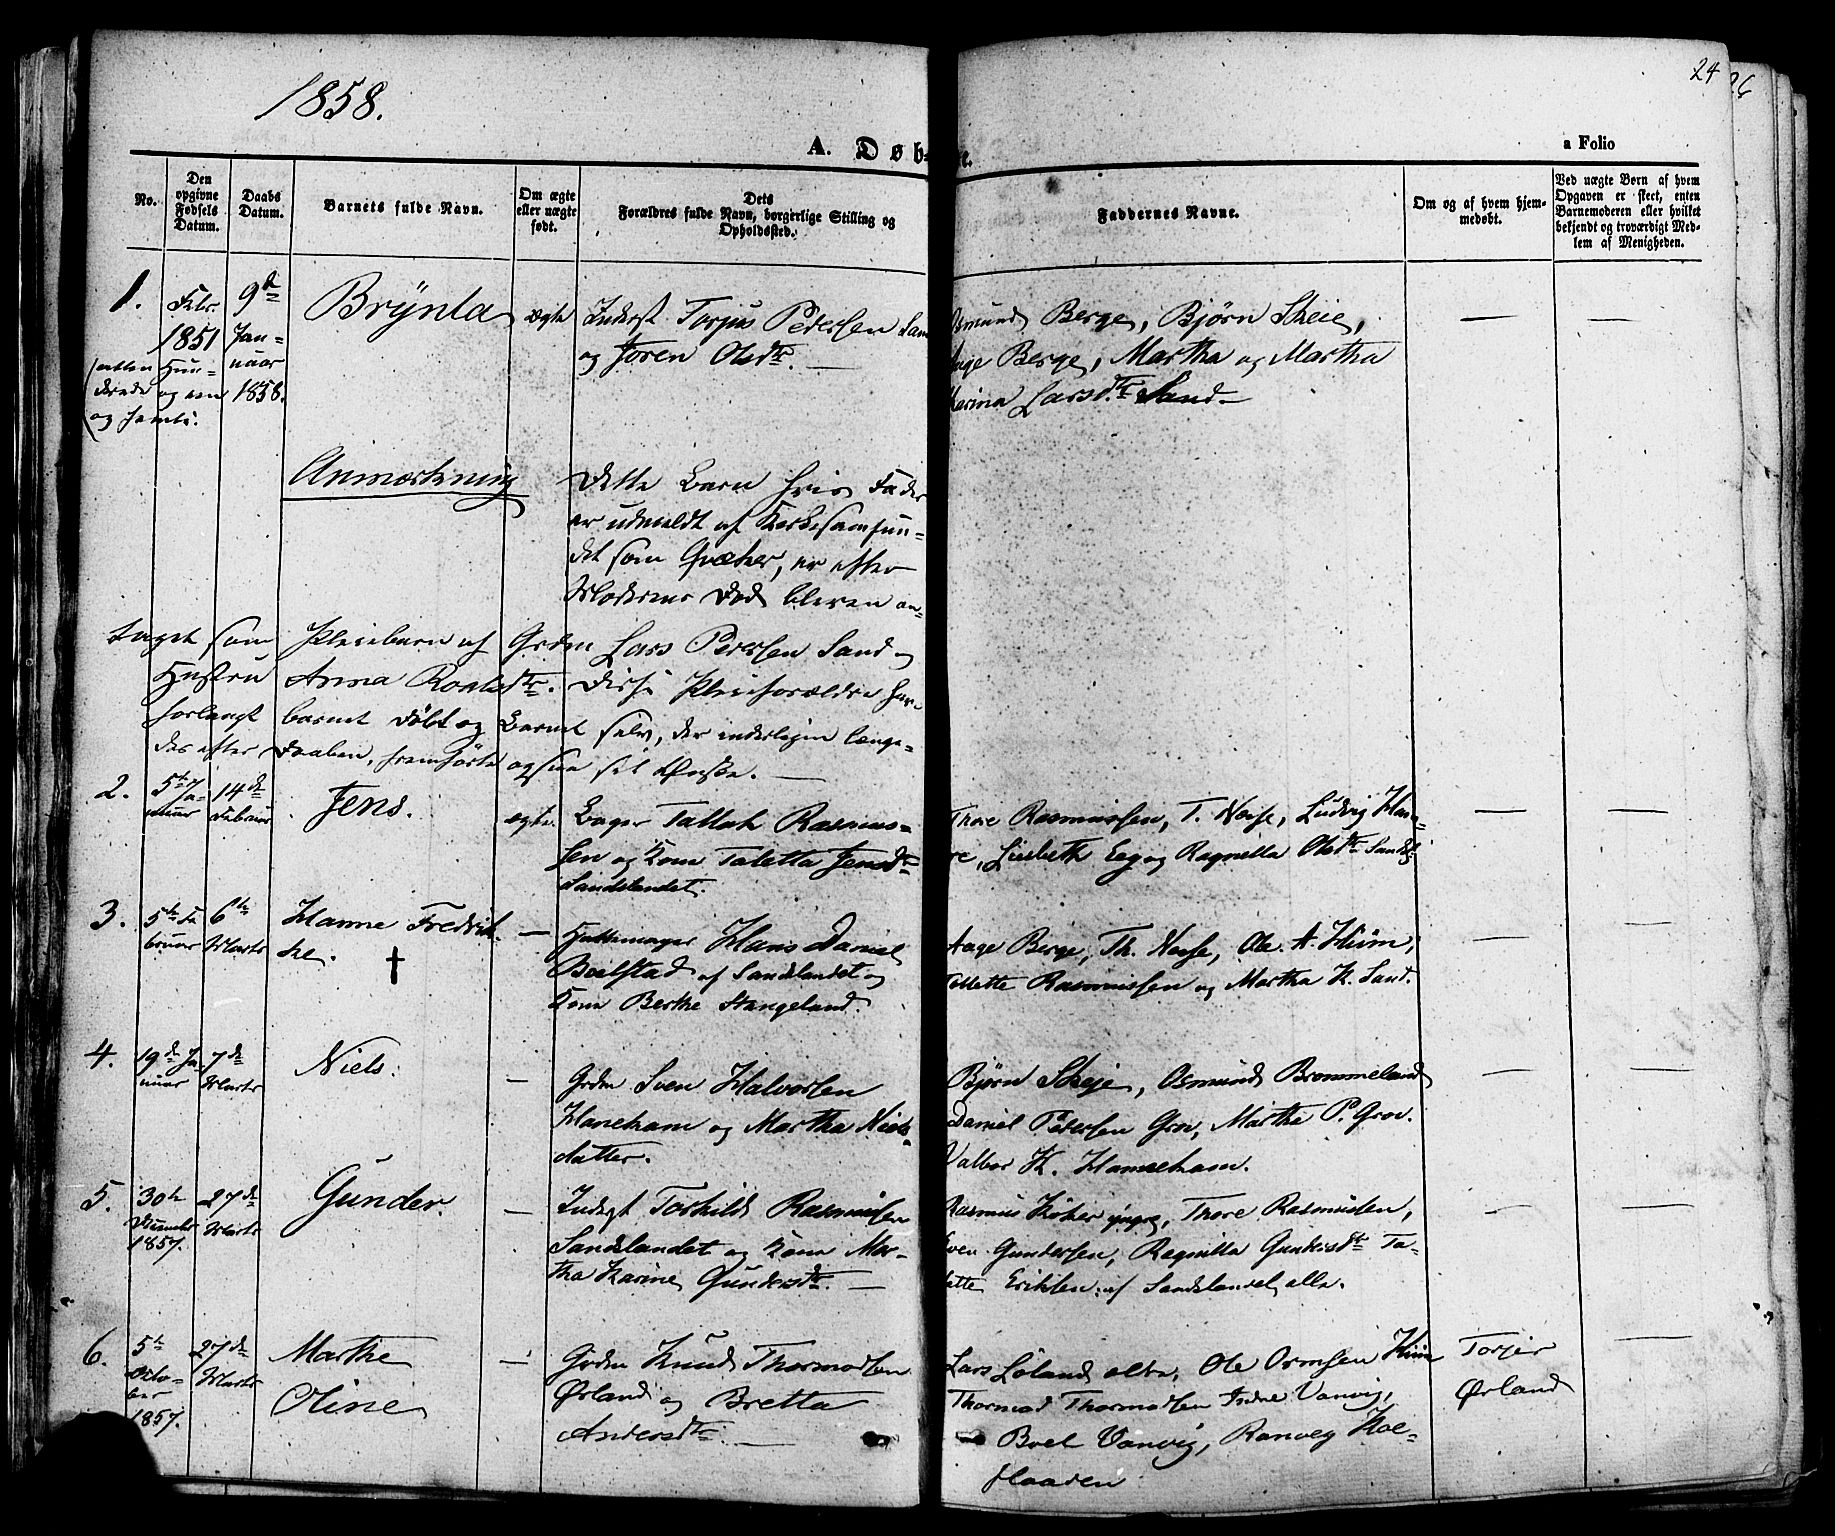 1858.
24
26
A. Døb-
te.
a Folio
No.
Den opgivne Fødsels Datum.
Daabs Datum.
Barnets fulde Navn.
Om ægte eller uægte født.
Dets Forældres fulde Navn, borgerlige Stilling og Opholdssted.
Faddernes Navne.
Om og af hvem hjemmedøbt.
Ved uægte Børn af hvem Opgaven er skeet, enten Barnemoderen eller hvilket bekjendt og troværdigt Medlem af Menigheden.
1.
Febr.
1851
(atten Hun-
drede og een
og femti.
9de
Jan-
uar
1858.
Brynla
ægte
Inderst Torjus Pedersen Sand
og Joren Olsdtr. —
Osmund Berge, Bjørn Skeie,
Aage Berge, Martha og Martha
Karina Larsdtr Sand.
—
—
Anmærkning
Dette Barn hvis Fader
er udmeldt af Kirkesamfun-
det som Qvæker, er efter
Moderens Død bleven an-
taget som Pleiebarn af Grdm Lars Pedersen Sand og
Hustru Anna Roaldsdtr. Disse Pleieforældre har
forlangt barnet døbt og Barnet selv, der inderligen længe-
des efter Daaben, fremførte ogsaa sit Ønske. —
2.
5te Ja-
nuar
14de
Februar
Jens.
ægte
Bager Tallak Rasmus-
sen og Kone Taletta Jensdtr
Sandslandet.
Thore Rasmussen, T. Næse, Ludvig Han-
re, Lisbeth Eeg og Ragnilla Olsdtr Sandsl.
—
—
3.
5te Fe-
bruar
6te
Marts
Hanne Fredrik-
ke. †
—
Hattemager Hans Daniel
Boelstad af Sandslandet og
Kone Berthe Stangeland.
Aage Berge, Th. Næse, Ole A. Hiim,
Tollette Rasmussen og Martha K. Sand.
—
—
4.
19de Ja-
nuar
7de
Marts
Niels.
—
Grdm Sven Halvorsen
Haneham og Martha Niels-
datter.
Bjørn Skeje, Osmund Brommeland
Daniel Pedersen Grov, Marthe P. Grov.
Valbor K. Hanneham.
—
—
5.
30te
Decembr
1857.
27de
Marts
Gunder.
—
Inderst Torkild Rasmussen
Sandslandet og Kone Mar-
tha Karine Gundersdtr. —
Rasmus Høker yngre, Thore Rasmussen,
Sven Gundersen, Ragnilla Gundersdtr Ta-
lette Eriksen, af Sandslandet alle.
—
—
6.
5te
Octo-
ber
1857.
27de
Marts
Marthe
Oline
—
Grdm Knud Thormodsen
Ørland og Bretta
Andersdtr. —
Lars Løland ældre, Ole Ormsen Hiim
Thormod Thormodsen Indre Vanvig,
Boel Vanvig, Ranveg Hoe-
flaaden
Torjer
Ørland
—